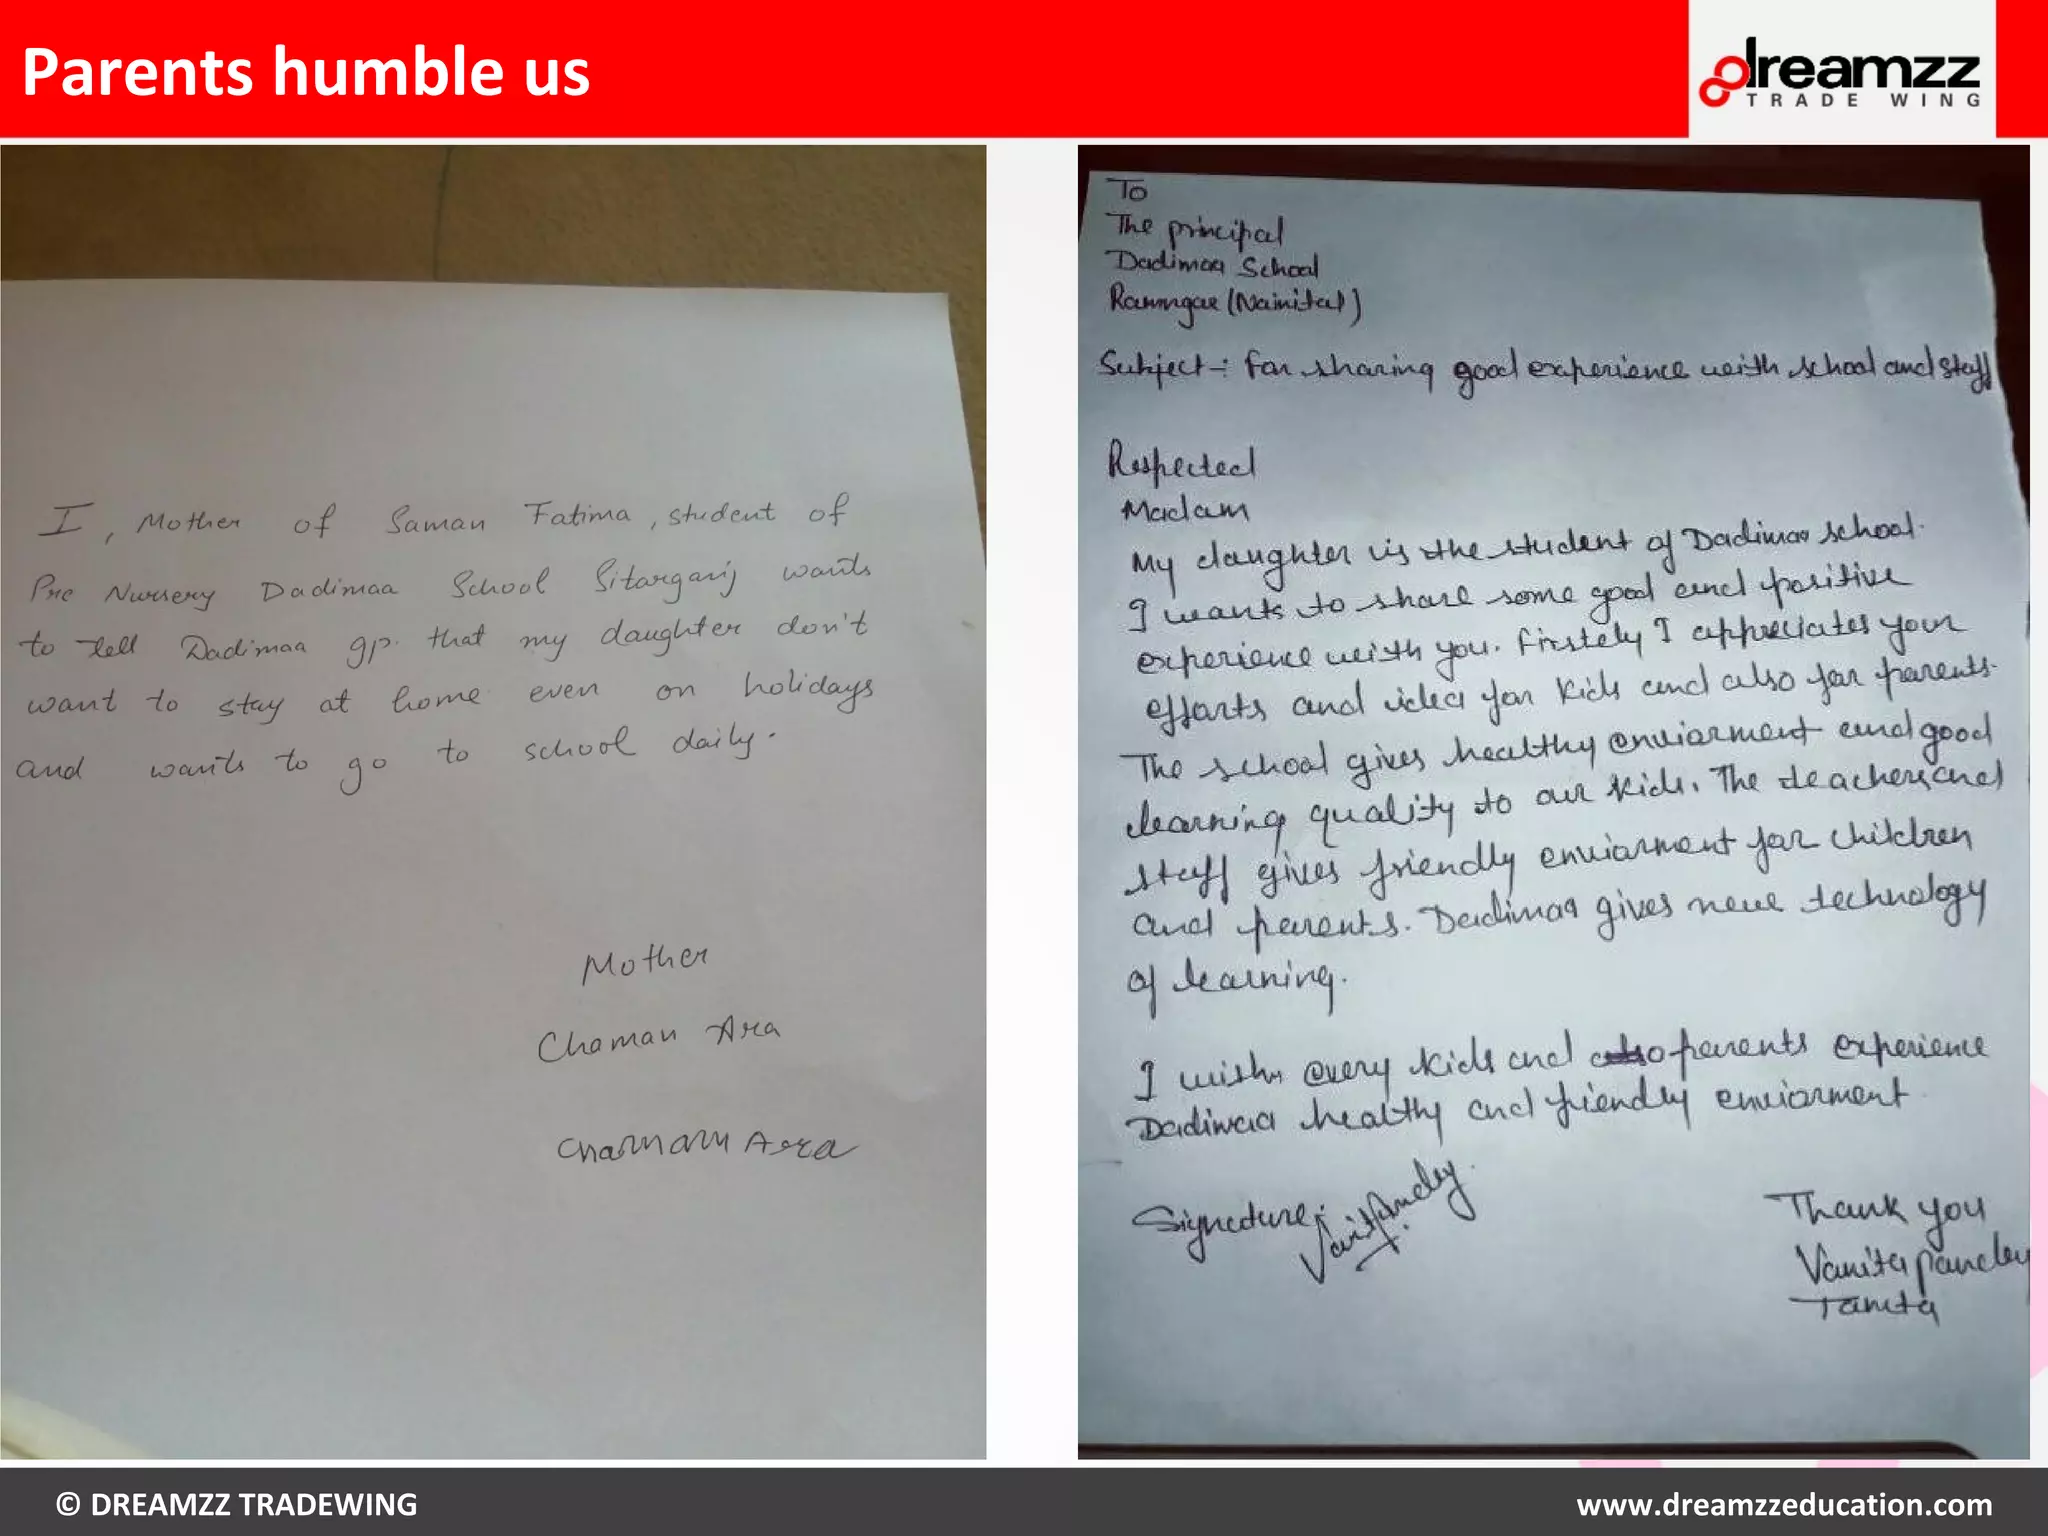 Parents humble us
dreamzz
TRADE WING
I, Mother of Saman Fatima, student of
Pre Nursery Dadimaa School Sitarganj wants
to tell Dadimaa gp. that my daughter don't
want to stay at home even on holidays
and wants to go to school daily.
Mother
Chaman Ara
Chaman Ara
To
The principal
Dadimaa School
Ramngar (Nainital)
Subject:- for sharing good experience with school and staff
Respected
Madam
My daughter is the student of Dadimaa school.
I wants to share some good and positive
experience with you. Firstely I appreciates your
efforts and idea for kids and also for parents.
The school gives healthy enviorment and good
learning quality to our kids. The teachers and
staff gives friendly enviorment for children
and parents. Dadimaa gives new technology
of learning.
I wish every kids and also parents experience
Dadimaa healthy and friendly enviorment.
Signature:
Thank you
Vanita pandey
© DREAMZZ TRADEWING
www.dreamzzeducation.com